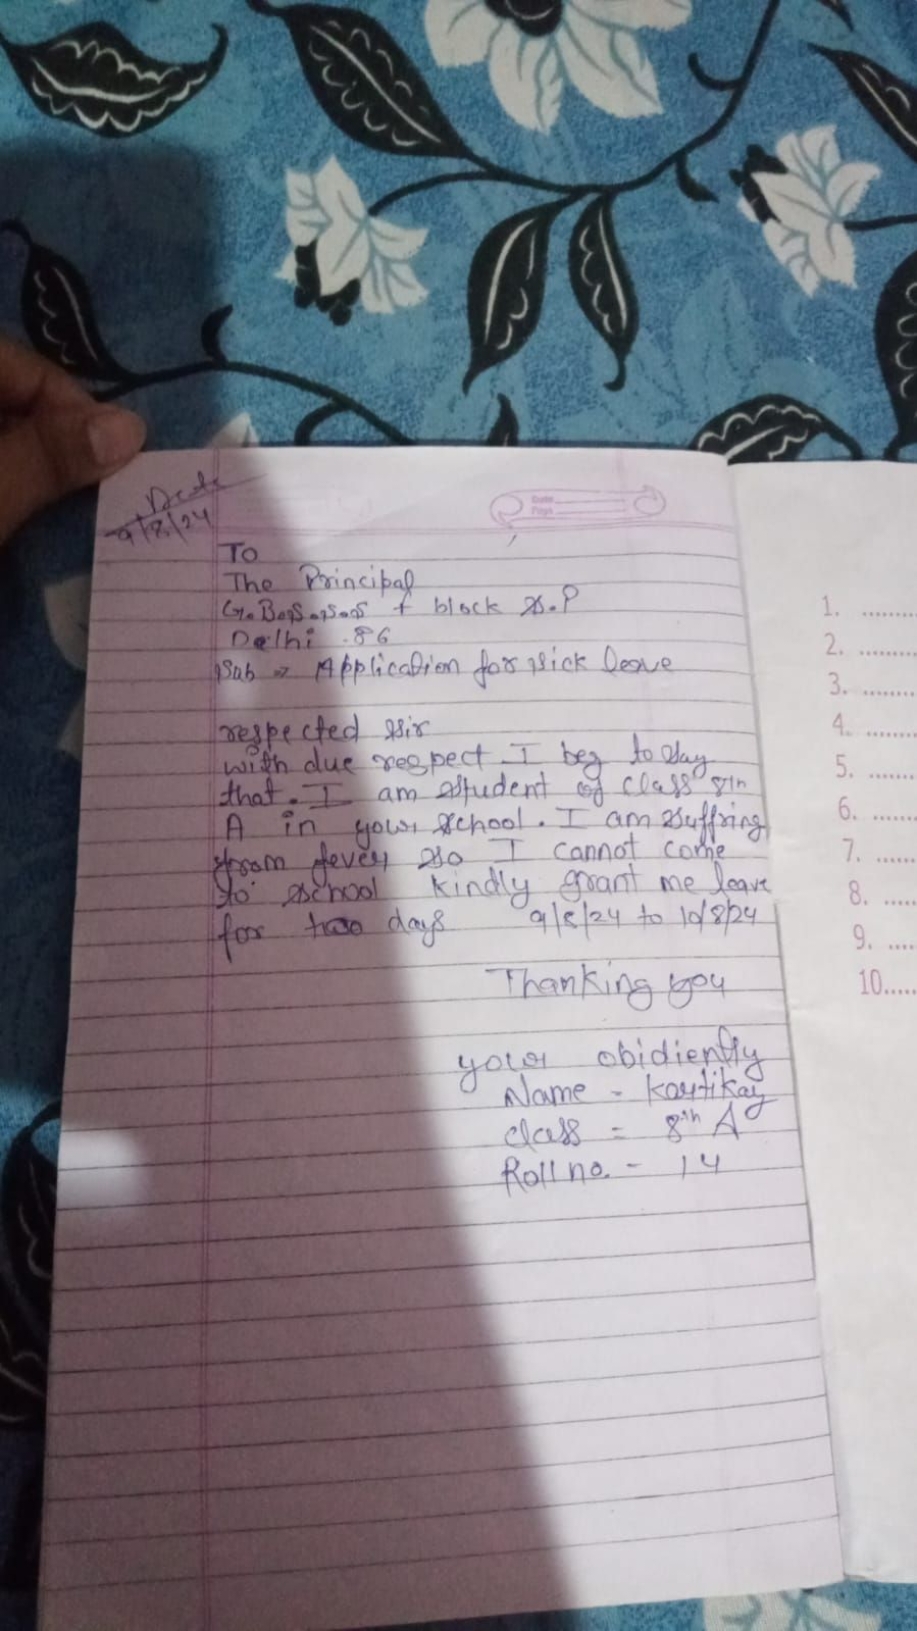 Date
9/8/24
Date
Page
To
The Principal
G.B.S.S.S + block S.P
Delhi .86
Sub => Application for sick leave
respected sir
with due respect I beg to say
that. I am student of class 8th
A in your school. I am suffring
from fever so I cannot come
to school kindly grant me leave
for two days 9/8/24 to 10/8/24
Thanking you
your obidiently
Name - Kartikay
class = 8th A
Roll no. - 14
1. ........
2. ........
3. ........
4. ........
5. ........
6. ........
7. ........
8. ......
9. ....
10.....